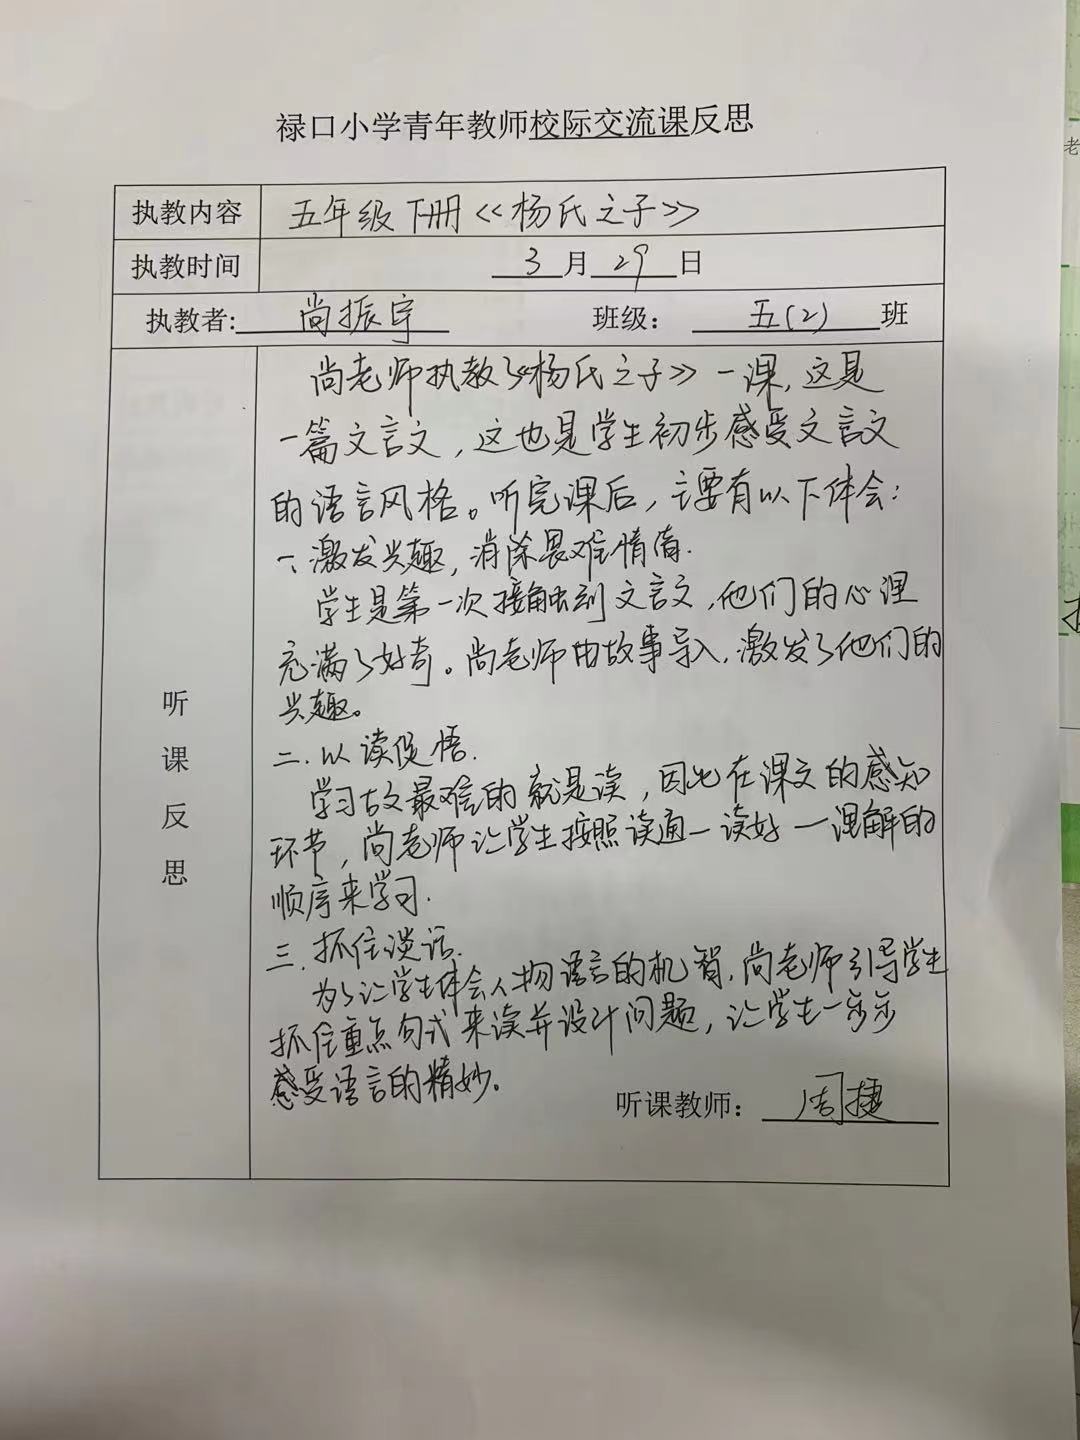 禄口小学青年教师校际交流课反思
执教内容 五年级下册《杨氏之子》
执教时间 3月29日
执教者:尚振宇 班级：五(2)班
尚老师执教了《杨氏之子》一课，这是
一篇文言文，这也是学生初步感受文言文
的语言风格。听完课后，主要有以下体会：
一、激发兴趣，消除畏难情绪.
学生是第一次接触到文言文，他们的心理
充满了好奇。尚老师由故事导入，激发了他们的
兴趣。
二.以读促悟.
学习古文最难的就是读，因此在课文的感知
环节，尚老师让学生按照读通一读好一理解的
顺序来学习.
三.抓住谈话.
为了让学生体会人物语言的机智，尚老师引导学生
抓住重点句式来读并设计问题，让学生一步步
感受语言的精妙。
听课反思
听课教师：周捷
老